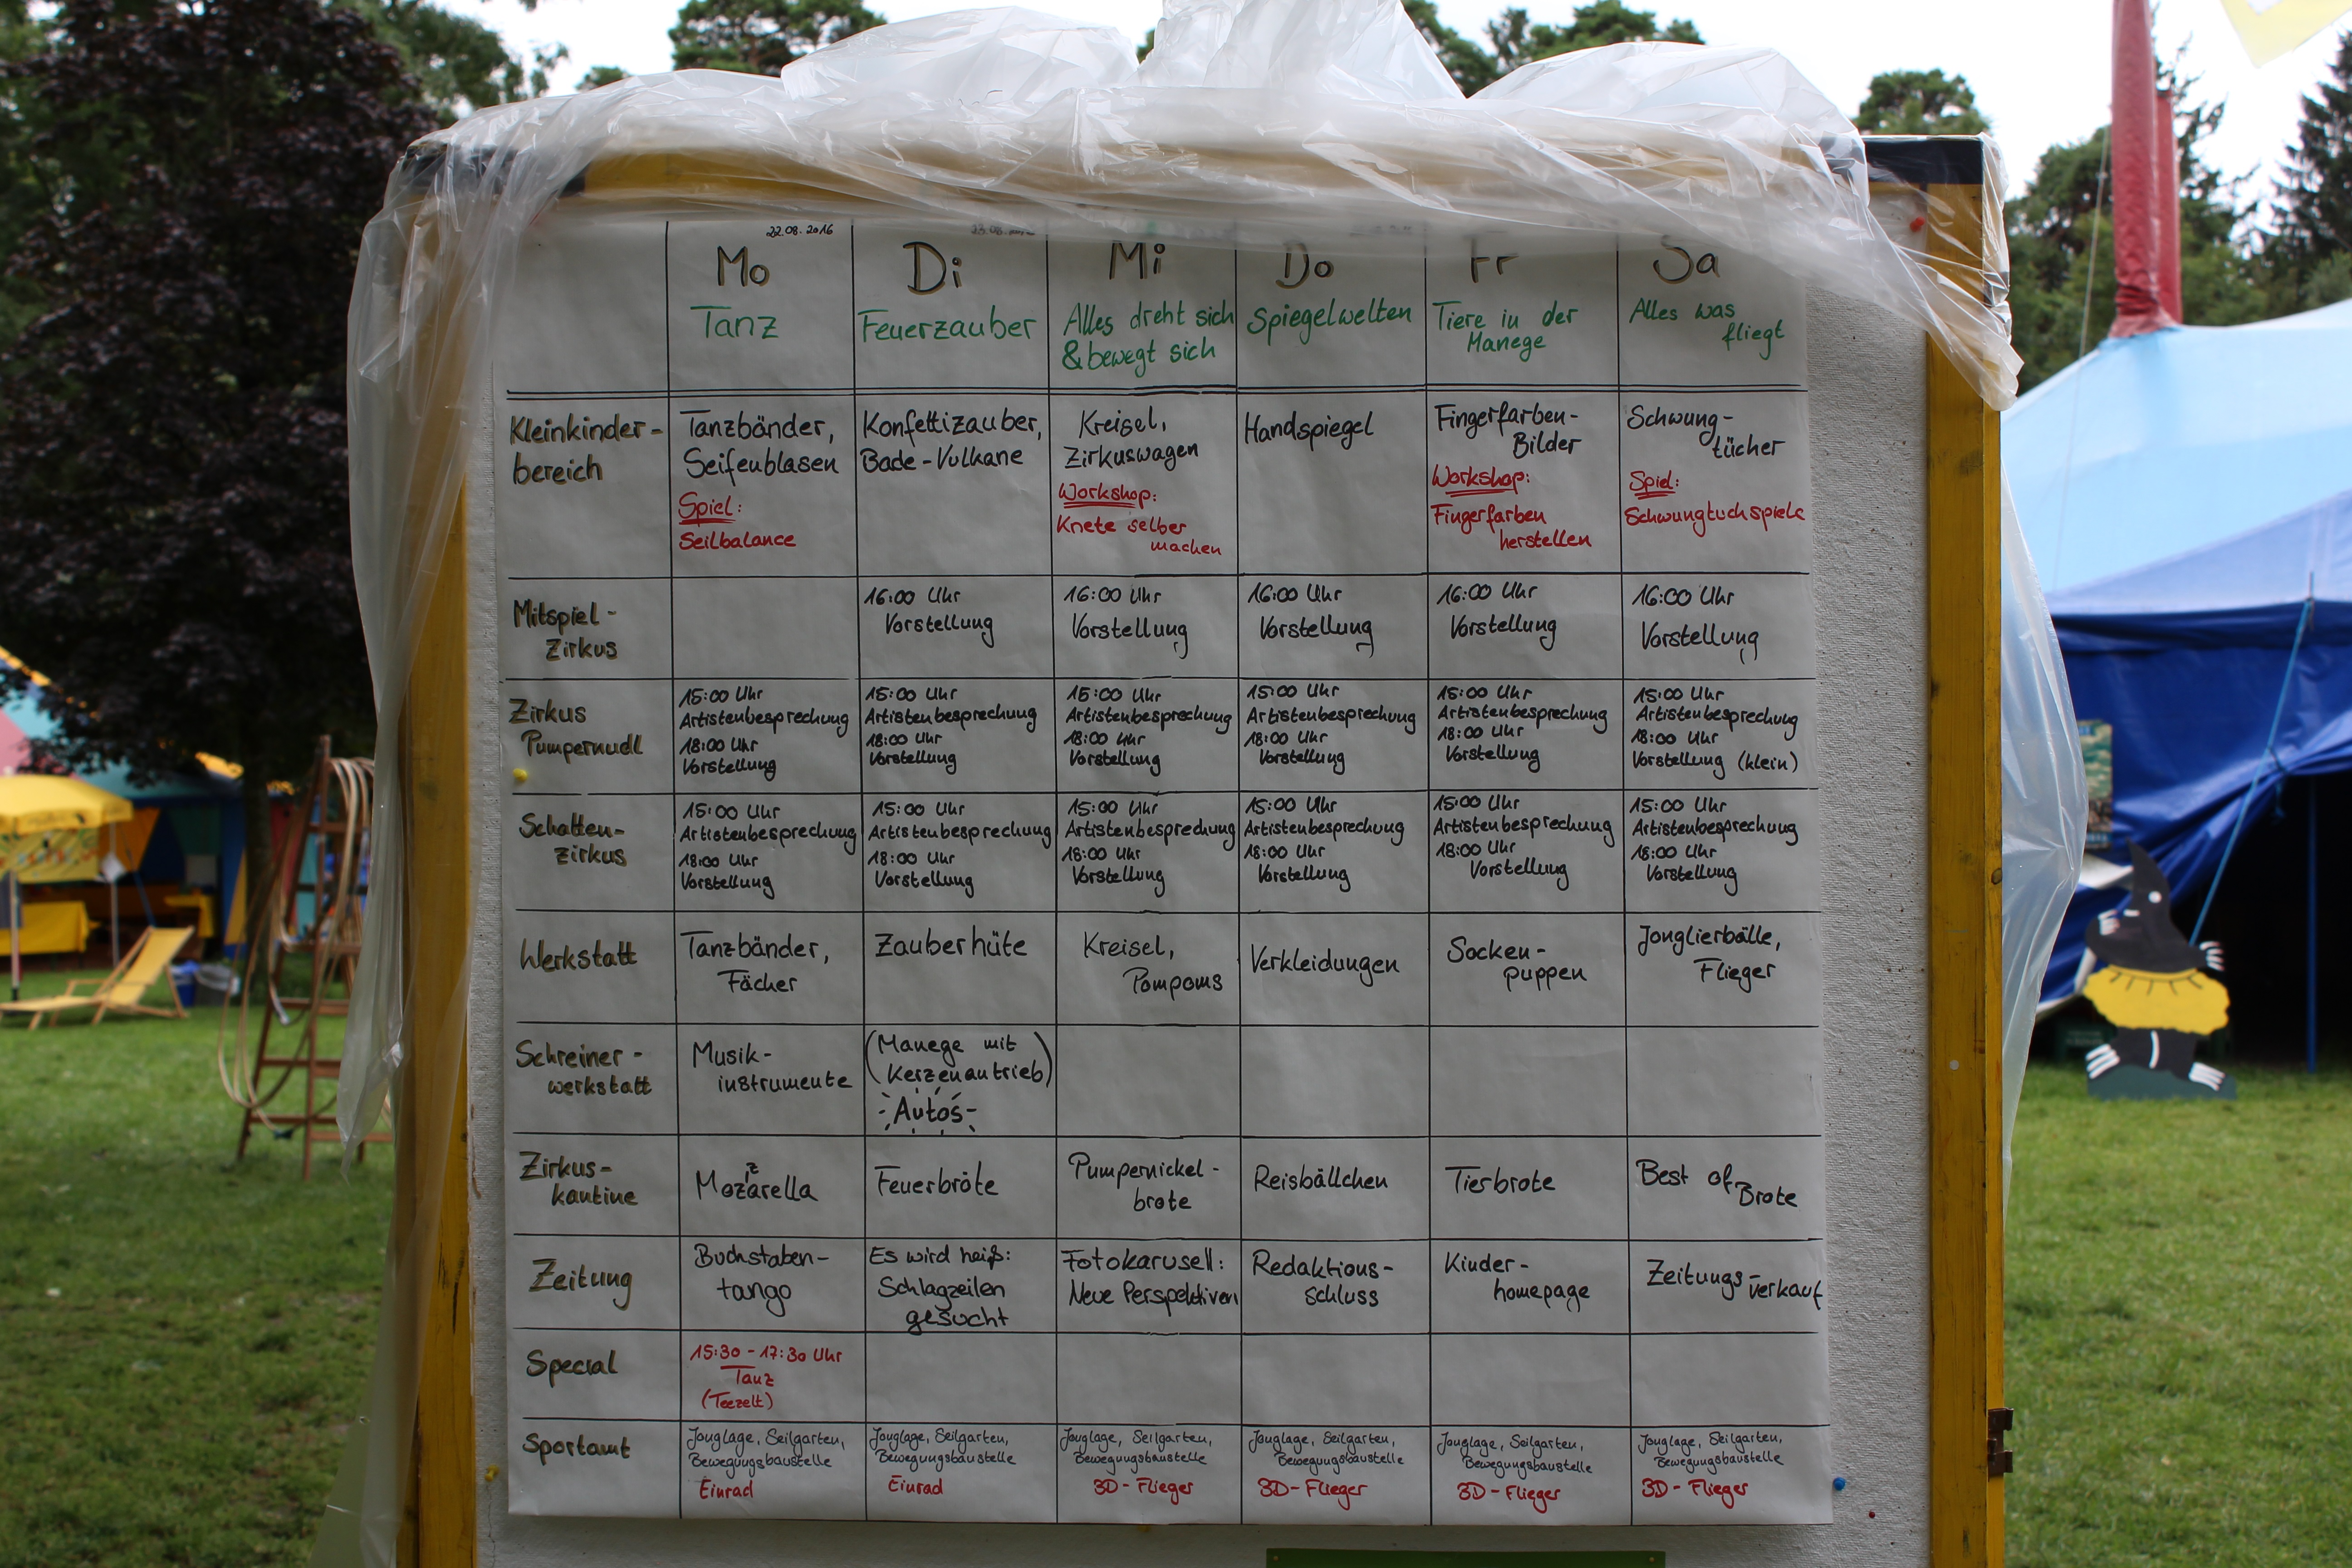 22.08.2016
Mo Di Mi Do Fr Sa
Tanz
Feuerzauber
Alles dreht sich
& bewegt sich
Spiegelwelten
Tiere in der
Manege
Alles was
fliegt
Kleinkinder-
bereich
Tanzbänder,
Seifenblasen
Spiel:
Seilbalance
Konfettizauber,
Bade-Vulkane
Kreisel,
Zirkuswagen
Workshop:
Knete selber
machen
Handspiegel
Fingerfarben-
Bilder
Workshop:
Fingerfarben
herstellen
Schwung-
tücher
Spiel:
Schwungtuchspiele
Mitspiel-
Zirkus
16:00 Uhr
Vorstellung
16:00 Uhr
Vorstellung
16:00 Uhr
Vorstellung
16:00 Uhr
Vorstellung
16:00 Uhr
Vorstellung
Zirkus
Pumpernudl
15:00 Uhr
Artistenbesprechung
18:00 Uhr
Vorstellung
15:00 Uhr
Artistenbesprechung
18:00 Uhr
Vorstellung
15:00 Uhr
Artistenbesprechung
18:00 Uhr
Vorstellung
15:00 Uhr
Artistenbesprechung
18:00 Uhr
Vorstellung
15:00 Uhr
Artistenbesprechung
18:00 Uhr
Vorstellung
15:00 Uhr
Artistenbesprechung
18:00 Uhr
Vorstellung (klein)
Schatten-
zirkus
15:00 Uhr
Artistenbesprechung
18:00 Uhr
Vorstellung
15:00 Uhr
Artistenbesprechung
18:00 Uhr
Vorstellung
15:00 Uhr
Artistenbesprechung
18:00 Uhr
Vorstellung
15:00 Uhr
Artistenbesprechung
18:00 Uhr
Vorstellung
15:00 Uhr
Artistenbesprechung
18:00 Uhr
Vorstellung
15:00 Uhr
Artistenbesprechung
18:00 Uhr
Vorstellung
Werkstatt
Tanzbänder,
Fächer
Zauberhüte
Kreisel,
Pompoms
Verkleidungen
Socken-
puppen
Jonglierbälle,
Flieger
Schreiner-
werkstatt
Musik-
instrumente
(Manege mit
Kerzenantrieb)
Autos
Zirkus-
kantine
Mozzarella
Feuerbröte
Pumpernickel-
brote
Reisbällchen
Tierbrote
Best of
Brote
Zeitung
Buchstaben-
tango
Es wird heiß:
Schlagzeilen
gesucht
Fotokarusell:
Neue Perspektiven
Redaktions-
schluss
Kinder-
homepage
Zeitungs-
verkauf
Special
15:30 - 17:30 Uhr
Tanz
(Teezelt)
Sportamt
Jonglage, Seilgarten,
Bewegungsbaustelle
Einrad
Jonglage, Seilgarten,
Bewegungsbaustelle
Einrad
Jonglage, Seilgarten,
Bewegungsbaustelle
3D-Flieger
Jonglage, Seilgarten,
Bewegungsbaustelle
3D-Flieger
Jonglage, Seilgarten,
Bewegungsbaustelle
3D-Flieger
Jonglage, Seilgarten,
Bewegungsbaustelle
3D-Flieger